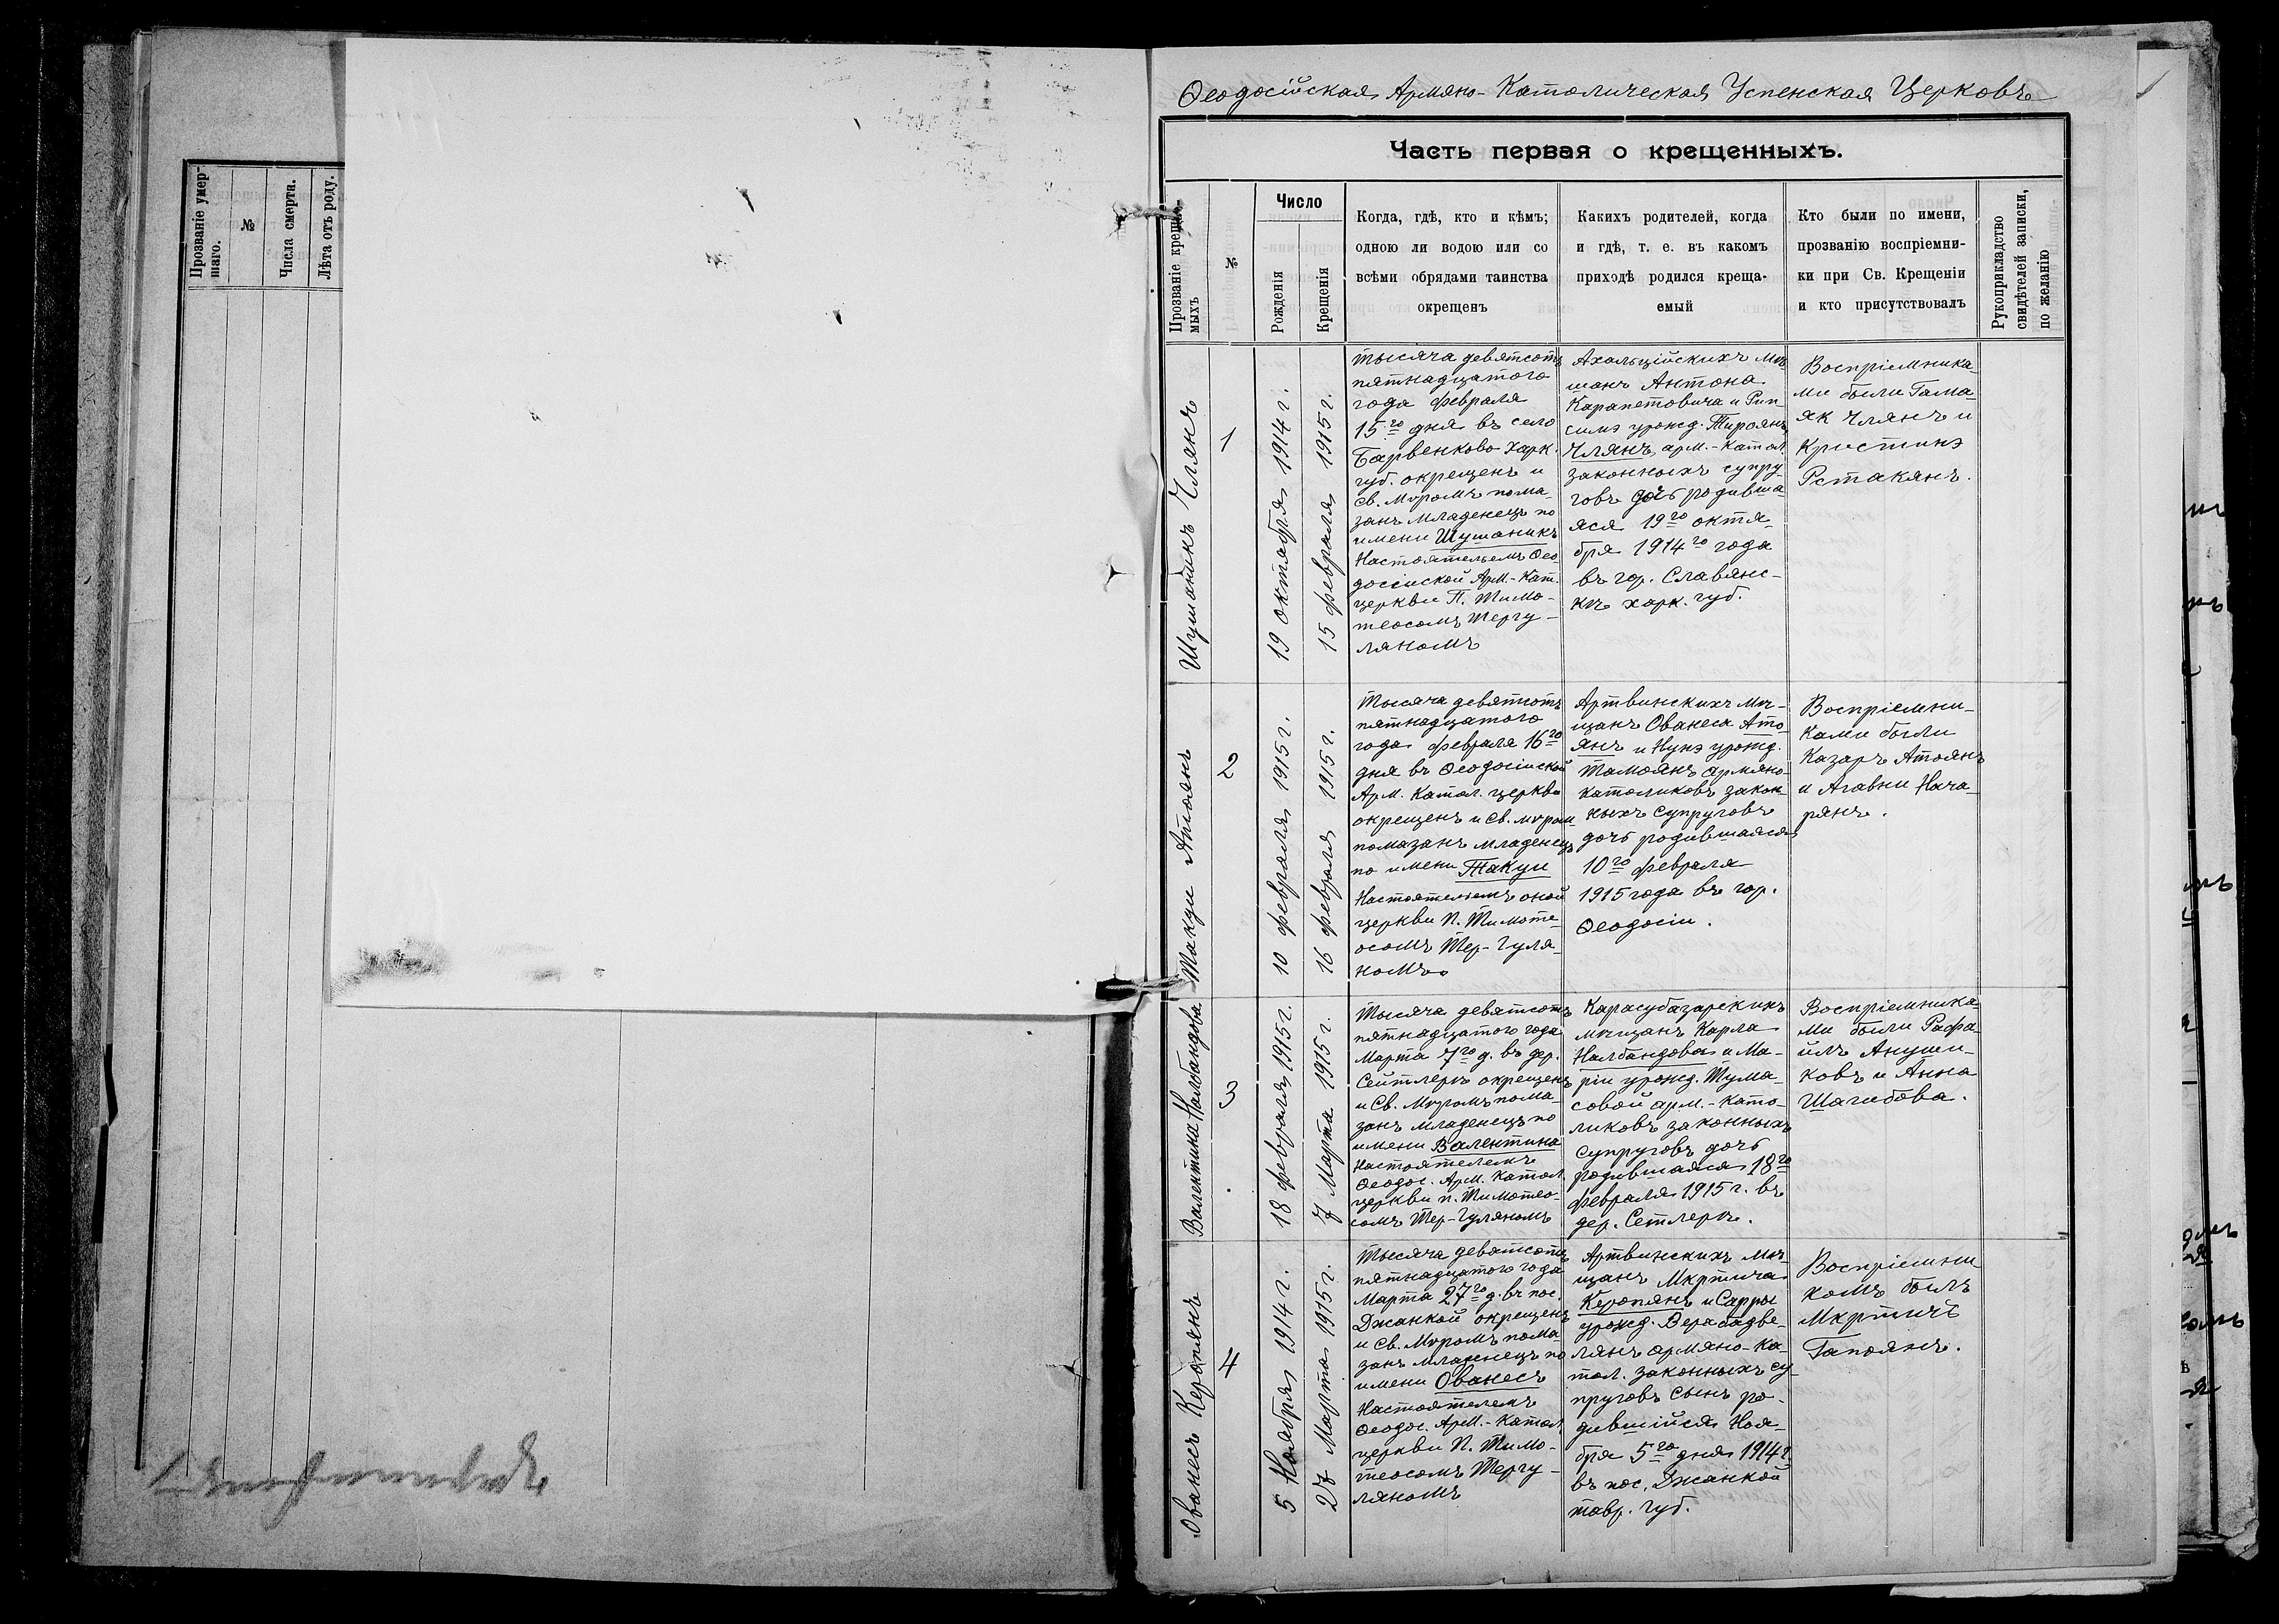 Прозваніе умер-
шаго.
№
Числа смерти.
Лѣта отъ роду.
Ѳеодосійская Армяно-Католическая Успенская Церковь
Часть первая о крещенныхъ.
Прозваніе крещае-
мыхъ
№
Число
Рожденія
Крещенія
Когда, гдѣ, кто и кѣмъ;
одною ли водою или со
всѣми обрядами таинства
окрещенъ
Какихъ родителей, когда
и гдѣ, т. е. въ какомъ
приходѣ родился креща-
емый
Кто были по имени,
прозванію воспріемни-
ки при Св. Крещеніи
и кто присутствовалъ
Рукоприкладство
свидѣтелей записки,
по желанію
Шушаникъ Члянъ
1
19 октября 1914 г.
15 февраля 1915 г.
тысяча девятсотъ
пятнадцатого
года февраля
15го дня въ село
Барвенково Харк.
губ. окрещенъ и
св. Мvромъ пома-
занъ младенецъ по
имени Шушаникъ
Настоятелемъ Ѳео-
досійской Арм.-Кат.
церкви П. Тимо-
теосомъ Тергу-
ляномъ
Ахальційскихъ мѣ-
щанъ Антона
Карапетовича и Рип-
симэ урожд. Тироянъ
Члянъ арм.-катол.
законныхъ супру-
говъ дочь родивша-
яся 19го октя-
бря 1914го года
въ гор. Славянс-
кѣ харк. губ.
Воспріемника-
ми были Гама-
як Члянъ и
Кристинэ
Рстакянъ.
Такуи Атоянъ
2
10 февраля 1915 г.
16 февраля 1915 г.
Тысяча девятсотъ
пятнадцатого
года февраля 16го
дня въ Ѳеодосійской
Арм. Катол. церкви
окрещенъ и св. мvром
помазанъ младенецъ
по имени Такуи
Настоятелемъ оной
церкви П. Тимоте-
осомъ Тер-Гуля-
номъ.
Артвинскихъ мѣ-
щанъ Ованеса Ато-
янъ и Нунэ урожд.
Тамоянъ армяно-
католиковъ закон-
ныхъ супруговъ
дочь родившаяся
10го февраля
1915 года въ гор.
Ѳеодосіи.
Воспріемни-
ками были
Казаръ Атоянъ
и Агавни Нача-
рянъ.
Валентина Налбандова
3
18 февраля 1915 г.
7 Марта 1915 г.
Тысяча девятсотъ
пятнадцатого года
Марта 7го д. въ дер.
Сейтлеръ окрещенъ
и Св. Мvромъ пома-
занъ младенецъ по
имени Валентина
Настоятелемъ
Ѳеодос. Арм. Катол.
церкви п. Тимотео-
сомъ Тер-Гуляномъ
Карасубазарскихъ
мѣщанъ Карла
Налбандова и Ма-
ріи урожд. Тума-
совой арм.-като-
ликовъ законныхъ
супруговъ дочь
родившаяся 18го
февраля 1915 г. въ
дер. Сетлеръ.
Воспріемника-
ми были Рафа-
илъ Ануши-
ковъ и Анна
Шагибова.
Ованесъ Керопянъ
4
5 Ноября 1914 г.
27 Марта 1915 г.
Тысяча девятсотъ
пятнадцатого года
Марта 27го д. въ пос.
Джанкой окрещенъ
и Св. Мvромъ пома-
занъ младенецъ по
имени Ованесъ
Настоятелемъ
Ѳеодос. Арм.-Катол.
церкви П. Тимо-
теосомъ Тергу-
ляномъ
Артвинскихъ мѣ-
щанъ Мкртича
Керопянъ и Сарры
урожд. Верабадве-
лянъ армяно-ка-
тол. законныхъ су-
пруговъ сынъ ро-
дившійся Ноя-
бря 5го дня 1914 г.
въ пос. Джанкой
тавр. губ.
Воспріемни
комъ былъ
Мкртичъ
Гапоянъ.